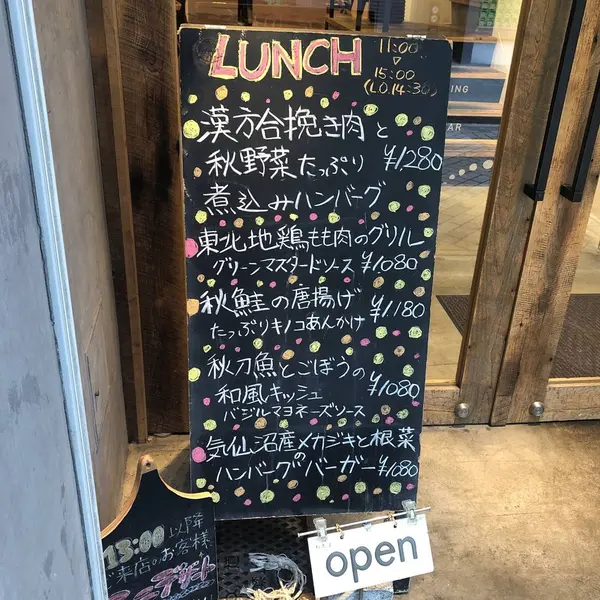 LUNCH
11:00
▽
15:00
(L.O.14:30)
漢方合挽き肉と
秋野菜たっぷり ¥1,280
煮込みハンバーグ
東北地鶏もも肉のグリル
グリーンマスタードソース ¥1080
秋鮭の唐揚げ ¥1,180
たっぷりキノコあんかけ
秋刀魚とごぼうの
和風キッシュ ¥1,080
バジルマヨネーズソース
気仙沼産メカジキと根菜
のハンバーグバーガー ¥1,080
13:00以降
ご来店のお客様
ミニデザート
open
ING
AR